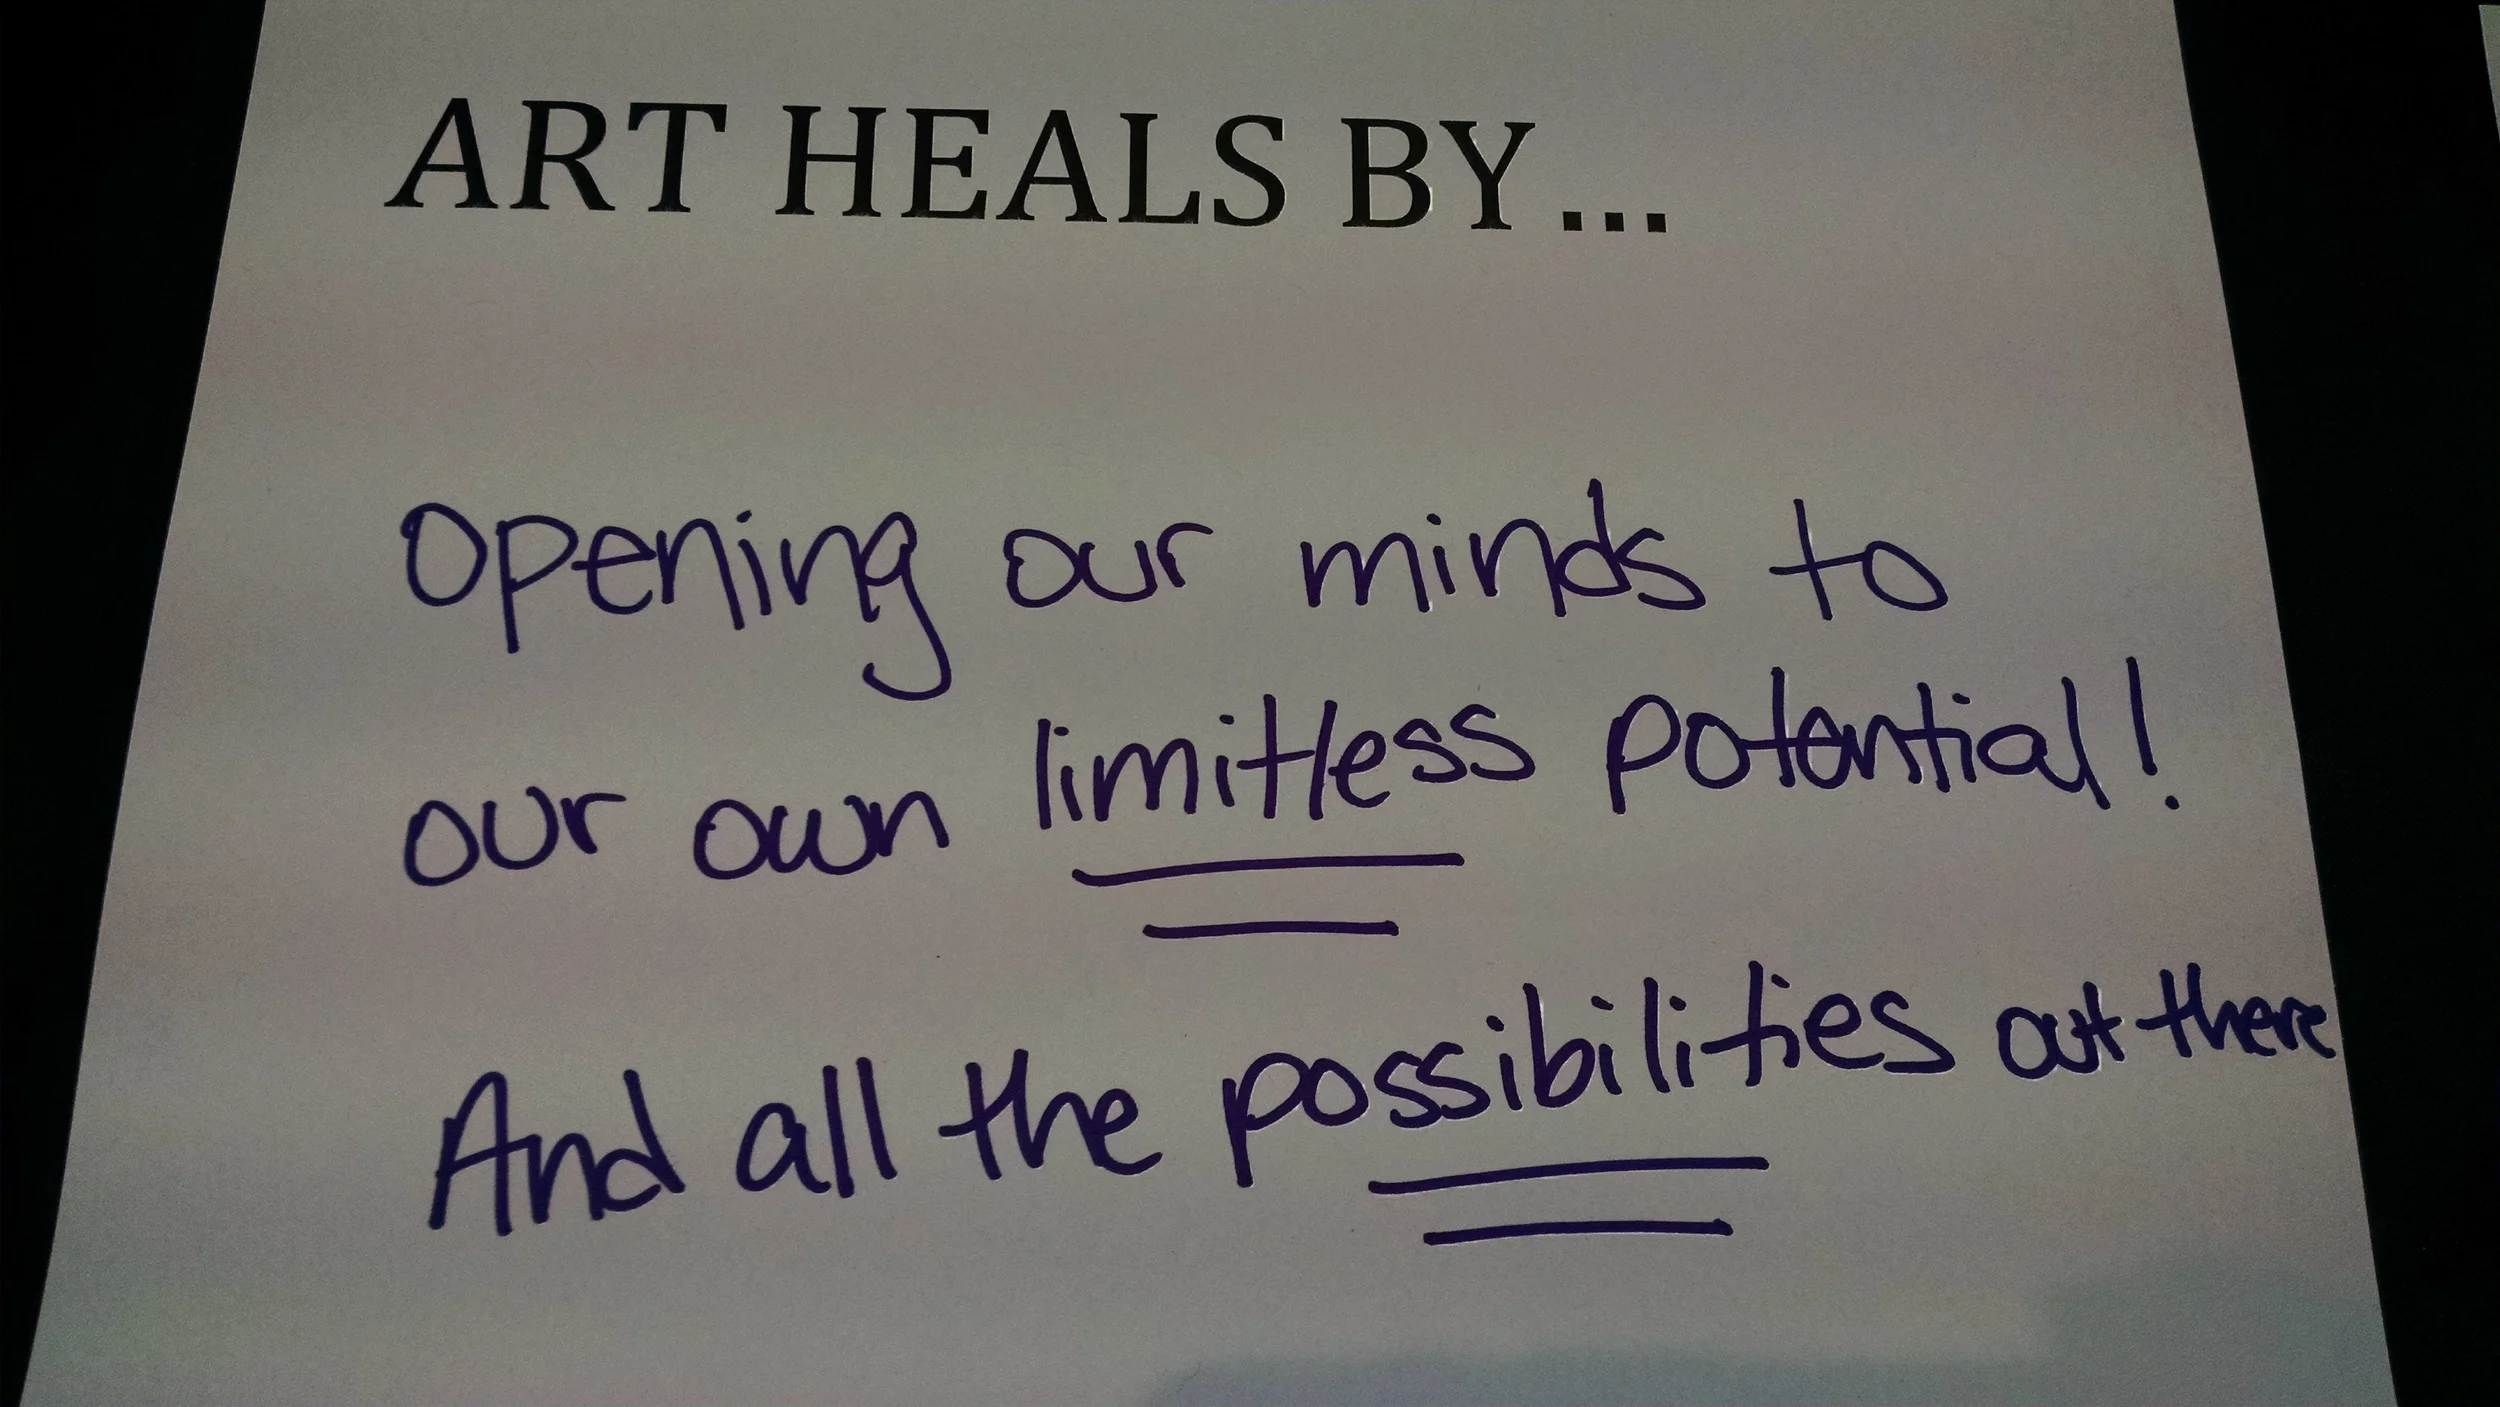 ART HEALS BY...
Opening our minds to
our own limitless potential!
And all the possibilities out there